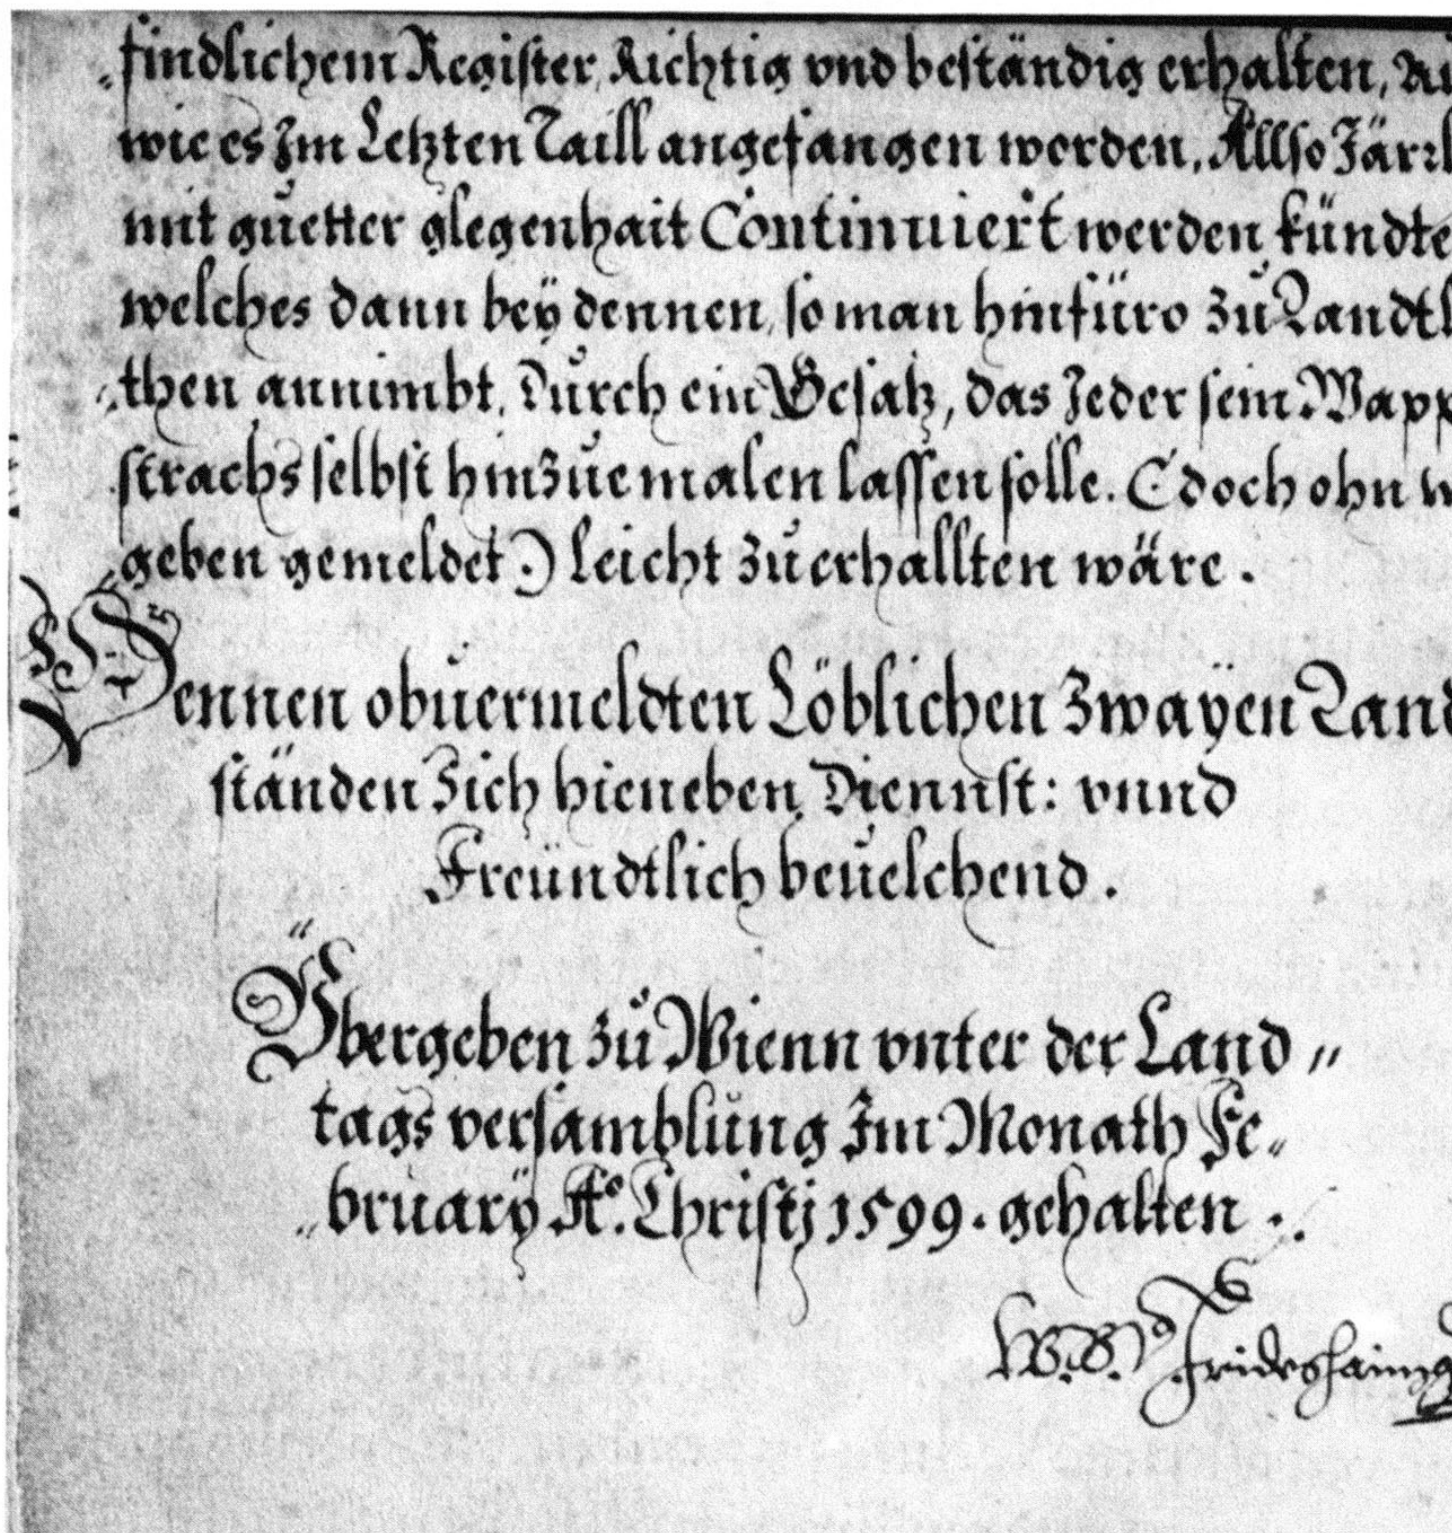 „findlichem Register, Richtig vnd beständig erhalten,
wie es Jm Letzten Taill angefangen worden, Allso Järl
mit guetter glegenhait Continuiert werden kündte
welches dann beÿ dennen, so man hinfüro zu Landtl
„then annimbt, Durch ein Gesatz, das Jeder sein Wapp
strachs selbst hinzue malen lassen solle. (doch ohn
geben gemeldet.) leicht zu erhallten wäre.
Dennen obuermeldten Löblichen zwaÿen Land
ständen Sich hieneben Diennst: vnnd
Freündtlich beuelchend.
Übergeben zu Wienn vnter der Land„
tags versamblung Jm Monath Fe„
„bruarÿ Aº. Christj 1599. gehalten.